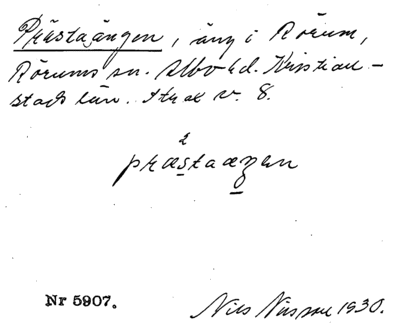 Prästaängen, äng i Rörum,
Rörums sn. Albo hd. Kristian-
stads län. Strax v. 8.
2
prästaäŋen
Nr 5907.
Nils 1930.